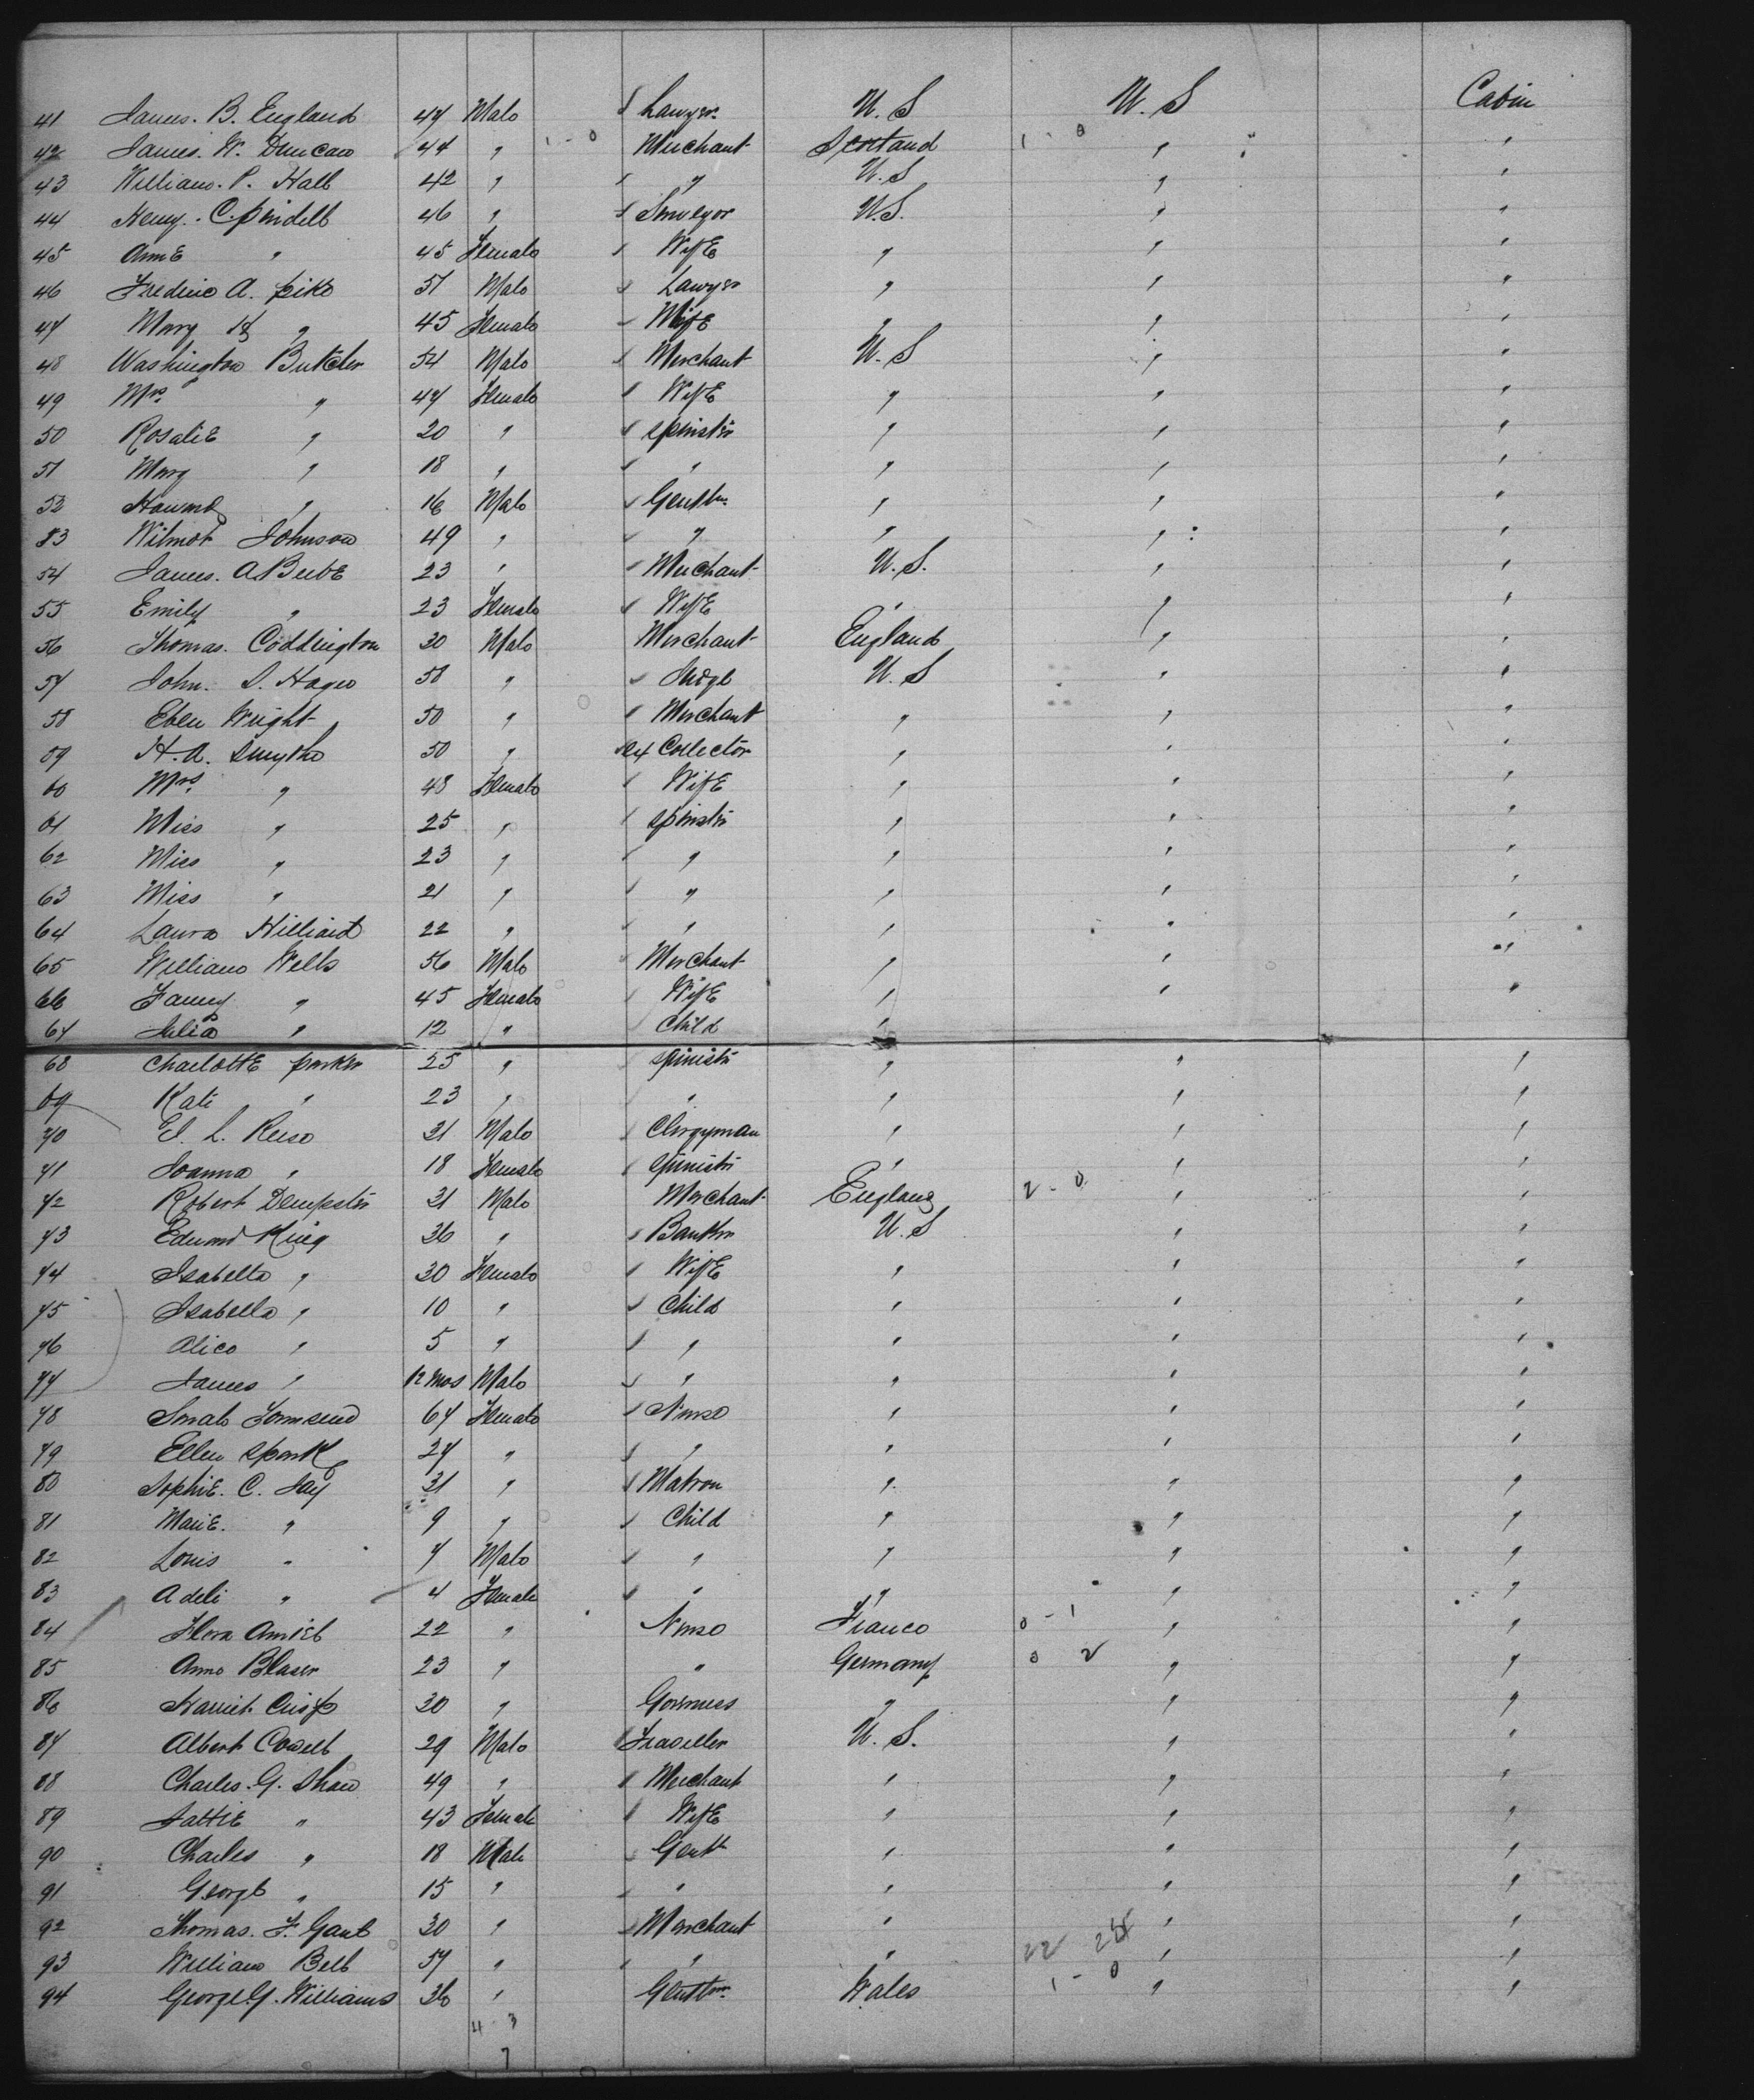 41 James. B. England 47 Male Lawyer U. S U. S Cabin
42 James. W. Duncan 44 " 1 - 0 Merchant Scotland 1 - 0 " "
43 William. P. Hall 42 " " U. S " "
44 Henry. C. Pindell 46 " Surveyor U.S. " "
45 Anne " 45 Female Wife " " "
46 Frederic A. Pike 51 Male Lawyer " " "
47 Mary H " 45 Female Wife " " "
48 Washington Butcher 54 Male Merchant U. S " "
49 Mrs. " 47 Female Wife " " "
50 Rosalie " 20 " Spinster " " "
51 Mary " 18 " " " " "
52 Howard " 16 Male Gentln. " " "
53 Wilmot Johnson 49 " " " " "
54 James. A. Beebe 23 " Merchant U. S. " "
55 Emily " 23 Female Wife " " "
56 Thomas. Coddington 30 Male Merchant England " "
57 John. S. Hager 58 " Judge U. S " "
58 Eben Wright 50 " Merchant " " "
59 H. A. Smythe 50 " Ex Collector " " "
60 Mrs. " 48 Female Wife " " "
61 Miss " 25 " Spinster " " "
62 Miss " 23 " " " " "
63 Miss " 21 " " " " "
64 Laura Hilliard 22 " " " " "
65 William Wells 56 Male Merchant " " "
66 Fanny " 45 Female Wife " " "
67 Julia " 12 " Child "
68 Charlotte Parker 25 " Spinster " " "
69 Kate " 23 " " " " "
70 L. 31 Male Clergyman " " "
71 Joanna " 18 Female Spinster " " "
72 Robert Dempster 31 Male Merchant England 2 - 0 " "
73 Edward King 36 " Banker U. S " "
74 Isabella " 30 Female Wife " " "
75 Isabella " 10 " Child " " "
76 Alice " 5 " " " " "
77 James " 12 mos Male " " " "
78 Sarah Townsend 67 Female Nurse " " "
79 Ellen Spark 27 " " " " "
80 Sophie. C. Jay 31 " Matron " " "
81 Marie. " 9 " Child " " "
82 Louis " 7 Male " " " "
83 Adele " 4 Female " " " "
84 Flora 22 " Nurse France 0 - 1 " "
85 Anna Blaser 23 " " Germany 0 2 " "
86 Harriet Crisp 30 " Governess " " "
87 Albert Cowell 29 Male Traveller U. S. " "
88 Charles. G. Shaw 49 " Merchant " " "
89 Hattie " 43 Female Wife " " "
90 Charles " 18 Male Gentl " " "
91 George " 15 " " " " "
92 Thomas. F. Gant 30 " Merchant " " "
93 William Bell 57 " " " 22 " "
94 George. G. Williams 36 " Gentln. Wales 1 - 0 " "
4 3
7